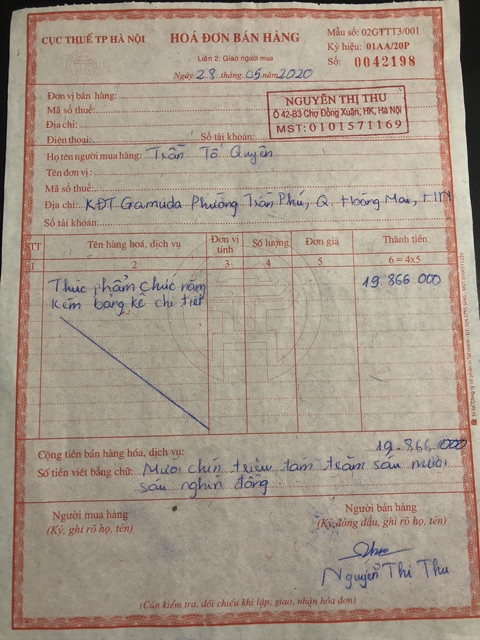 CỤC THUẾ TP HÀ NỘI
HOÁ ĐƠN BÁN HÀNG
Mẫu số: 02GTTT3/001
Liên 2: Giao người mua
Ký hiệu: 01AA/20P
Ngày 28 tháng 05 năm 2020
Số: 0042198
Đơn vị bán hàng:
Mã số thuế:
Địa chỉ:
Điện thoại: Số tài khoản:
NGUYỄN THỊ THU
Ô 42-B3 Chợ Đồng Xuân, HK, Hà Nội
MST: 0101571169
Họ tên người mua hàng: Trần Tố Quyên
Tên đơn vị:
Mã số thuế:
Địa chỉ: KĐT Gamuda Phường Trần Phú, Q. Hoàng Mai, HN
Số tài khoản:
STT Tên hàng hoá, dịch vụ Đơn vị tính Số lượng Đơn giá Thành tiền
1 2 3 4 5 6 = 4x5
Thực phẩm chức năng 19.866 000
kèm bảng kê chi tiết
Cộng tiền bán hàng hóa, dịch vụ: 19.866.000
Số tiền viết bằng chữ: Mười chín triệu tám trăm sáu mươi
sáu nghìn đồng
Người mua hàng Người bán hàng
(Ký, ghi rõ họ, tên) (Ký, đóng dấu, ghi rõ họ, tên)
Thu
Nguyễn Thị Thu
(Cần kiểm tra, đối chiếu khi lập, giao, nhận hóa đơn)